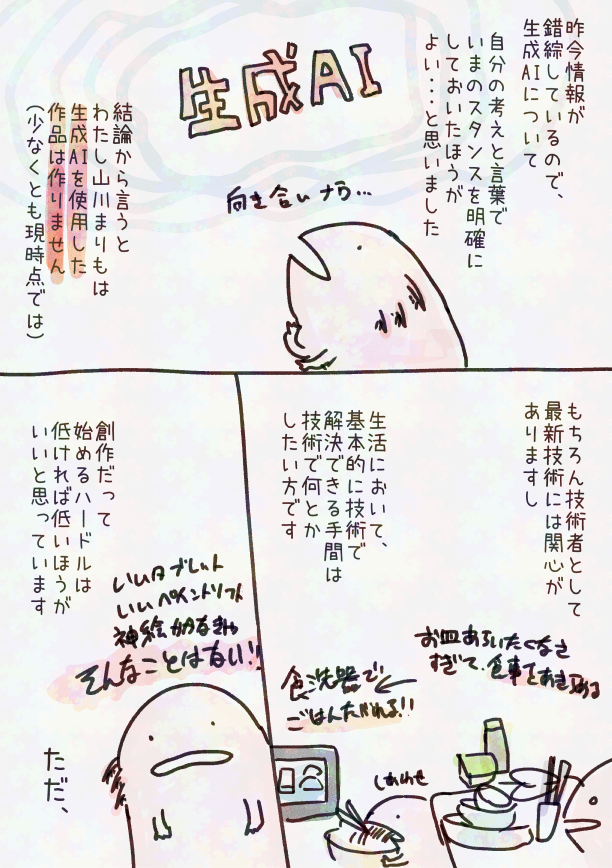 昨今情報が
錯綜しているので、
生成AIについて
自分の考えと言葉で
いまのスタンスを明確に
しておいたほうが
よい・・・と思いました
生成AI
向き合いナウ…
結論から言うと
わたし山川まりもは
生成AIを使用した
作品は作りません
(少なくとも現時点では)
もちろん技術者として
最新技術には関心が
ありますし
生活において、
基本的に技術で
解決できる手間は
技術で何とか
したい方です
お皿あらいたくなさ
すぎて、食事をあきらめる
食洗器で
ごはんたべれる!!
しあわせ
創作だって
始めるハードルは
低ければ低いほうが
いいと思っています
いいタブレット
いいペイントソフト
神絵かけなきゃ
そんなことはない!!
ただ、